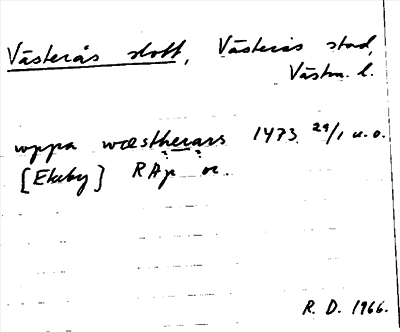 Västerås slott, Västerås stad,
Västm. l.
uppa wæstherars 1473 29/1 u.o.
[Ekeby] RAp or.
R. D. 1966.